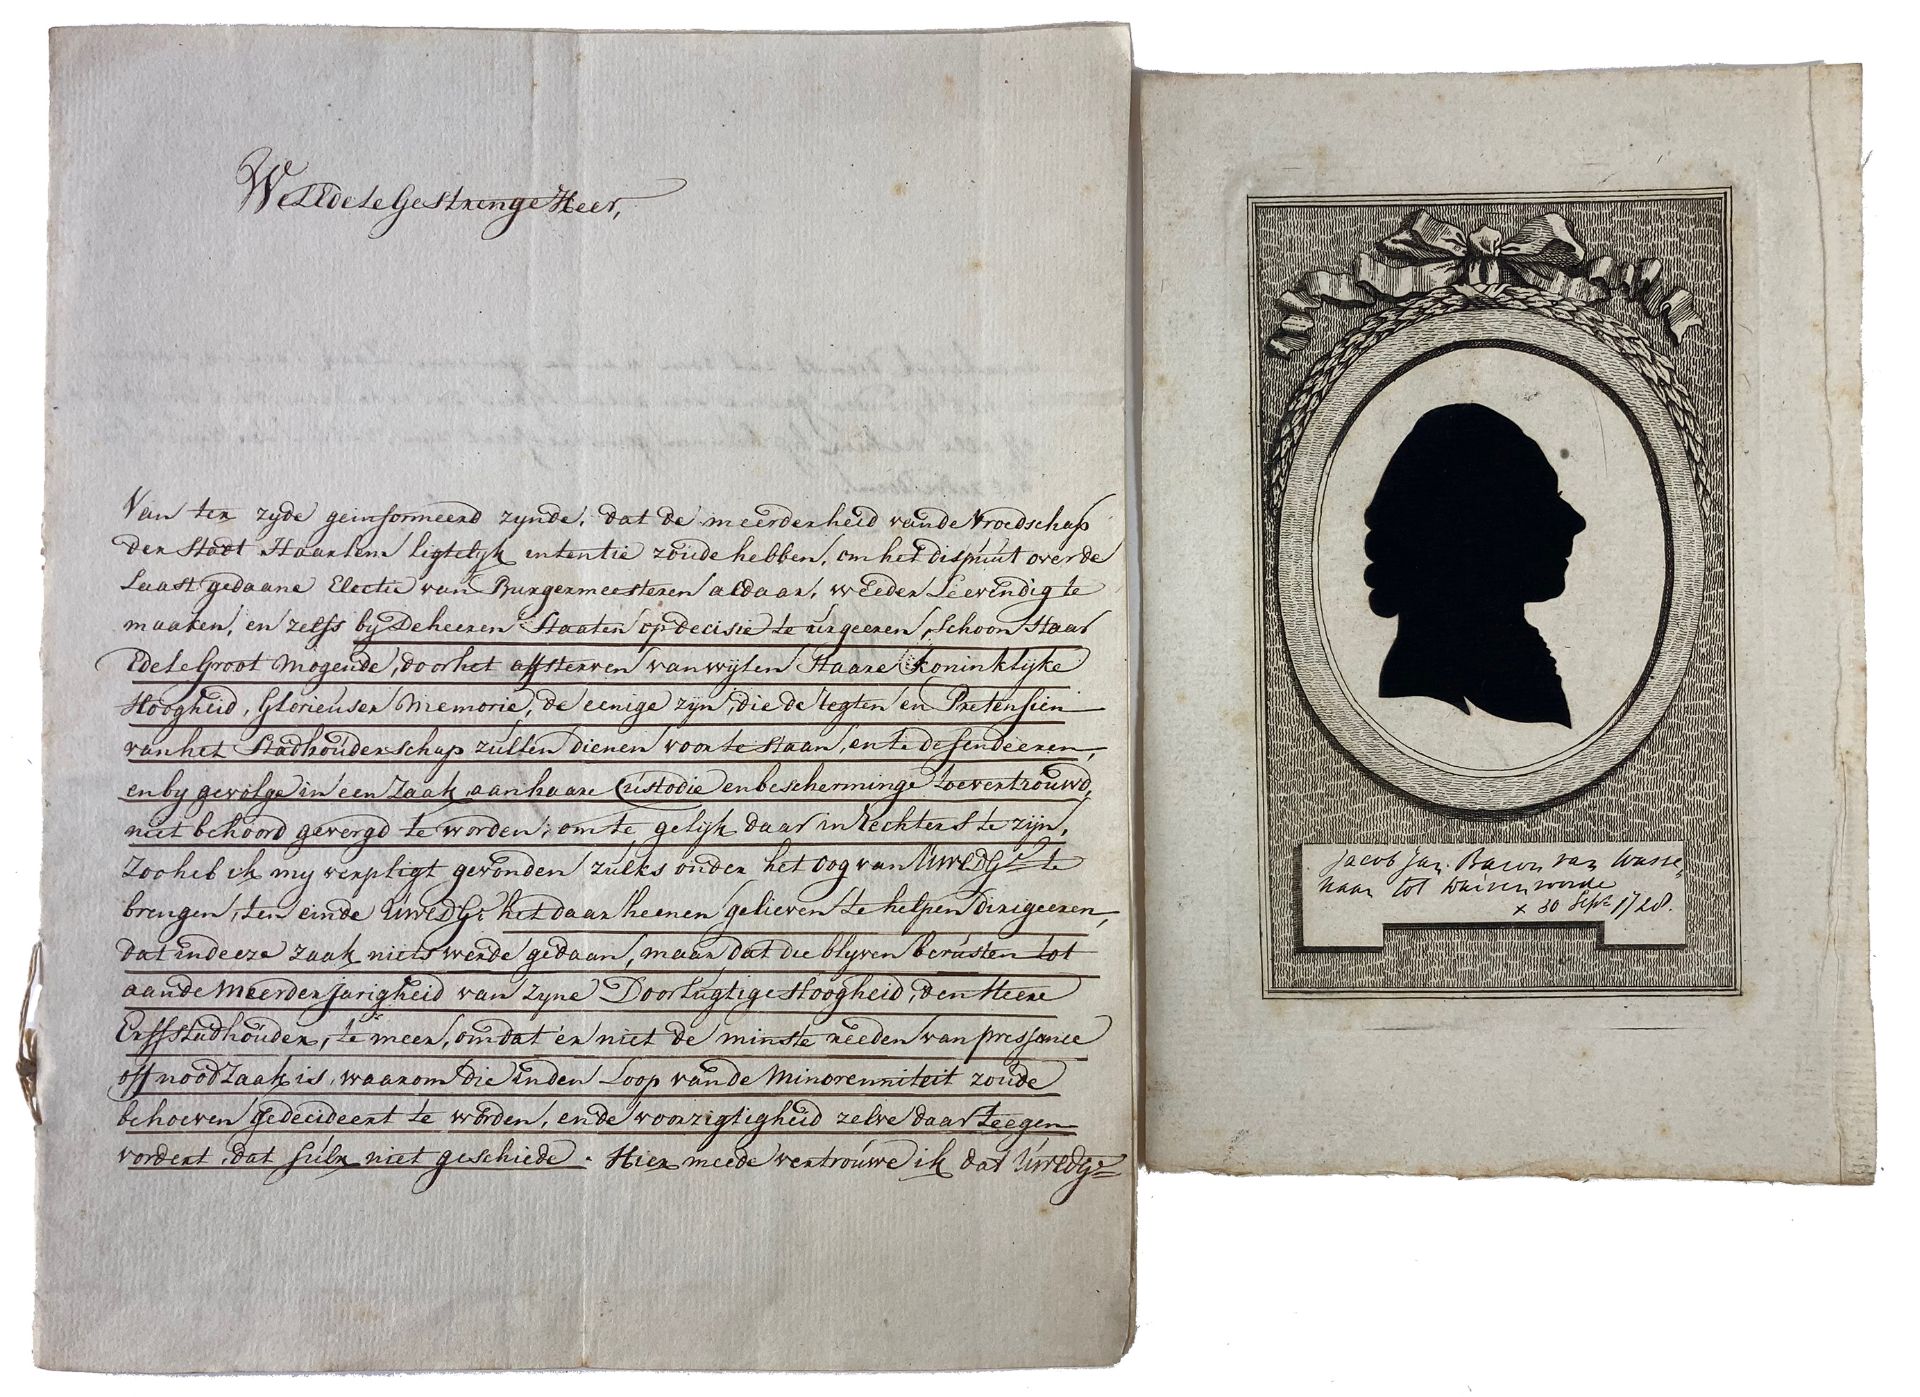 WelEdele Gestrenge Heer,
Van ter zyde geinformeerd zynde, dat de meerderheid van de Vroedschap
der Stadt Haarlem ligtelyk intentie zoude hebben, om het dispuut over de
Laast gedaane Electie van Burgermeesteren aldaar, weeder Leevendig te
maaken, en zelfs by De heeren Staaten op decisie te urgeeren, schoon Haar
Edele Groot Mogende, door het afsterven van wylen Haare Koninklyke
Hoogheid, Glorieuser Memorie, de eenige zyn, die de regten en Pretensien
van het Stadhouderschap zullen dienen voor te staan, en te defendeeren,
en by gevolge in een Zaak, aan haare Custodie en bescherminge toevertrouwd,
niet behoord gevergd te worden, om te gelyk daar in Rechters te zyn,
Zoo heb ik my verpligt gevonden zulks onder het oog van UWEDGe te
brengen, ten einde UWEDGe het daar heenen gelieven te helpen dirigeeren,
dat in deeze zaak niets werde gedaan, maar dat die blyven berusten tot
aan de Meerderjarigheid van Zyne Doorlugtige Hoogheid, den Heere
Erffstadhouder, te meer, omdat er niet de minste reeden van pressance
off noodzaak is, waarom die in den Loop van de Minorenniteit zoude
behoeven gedecideert te worden, en de voorzigtigheid zelve daar teegen
vordert, dat sulx niet geschiede. Hier meede vertrouwe ik dat UWEDGe
Jacob Jan. Baron van Wasse,
naar tot
x 30 Sept 1728.